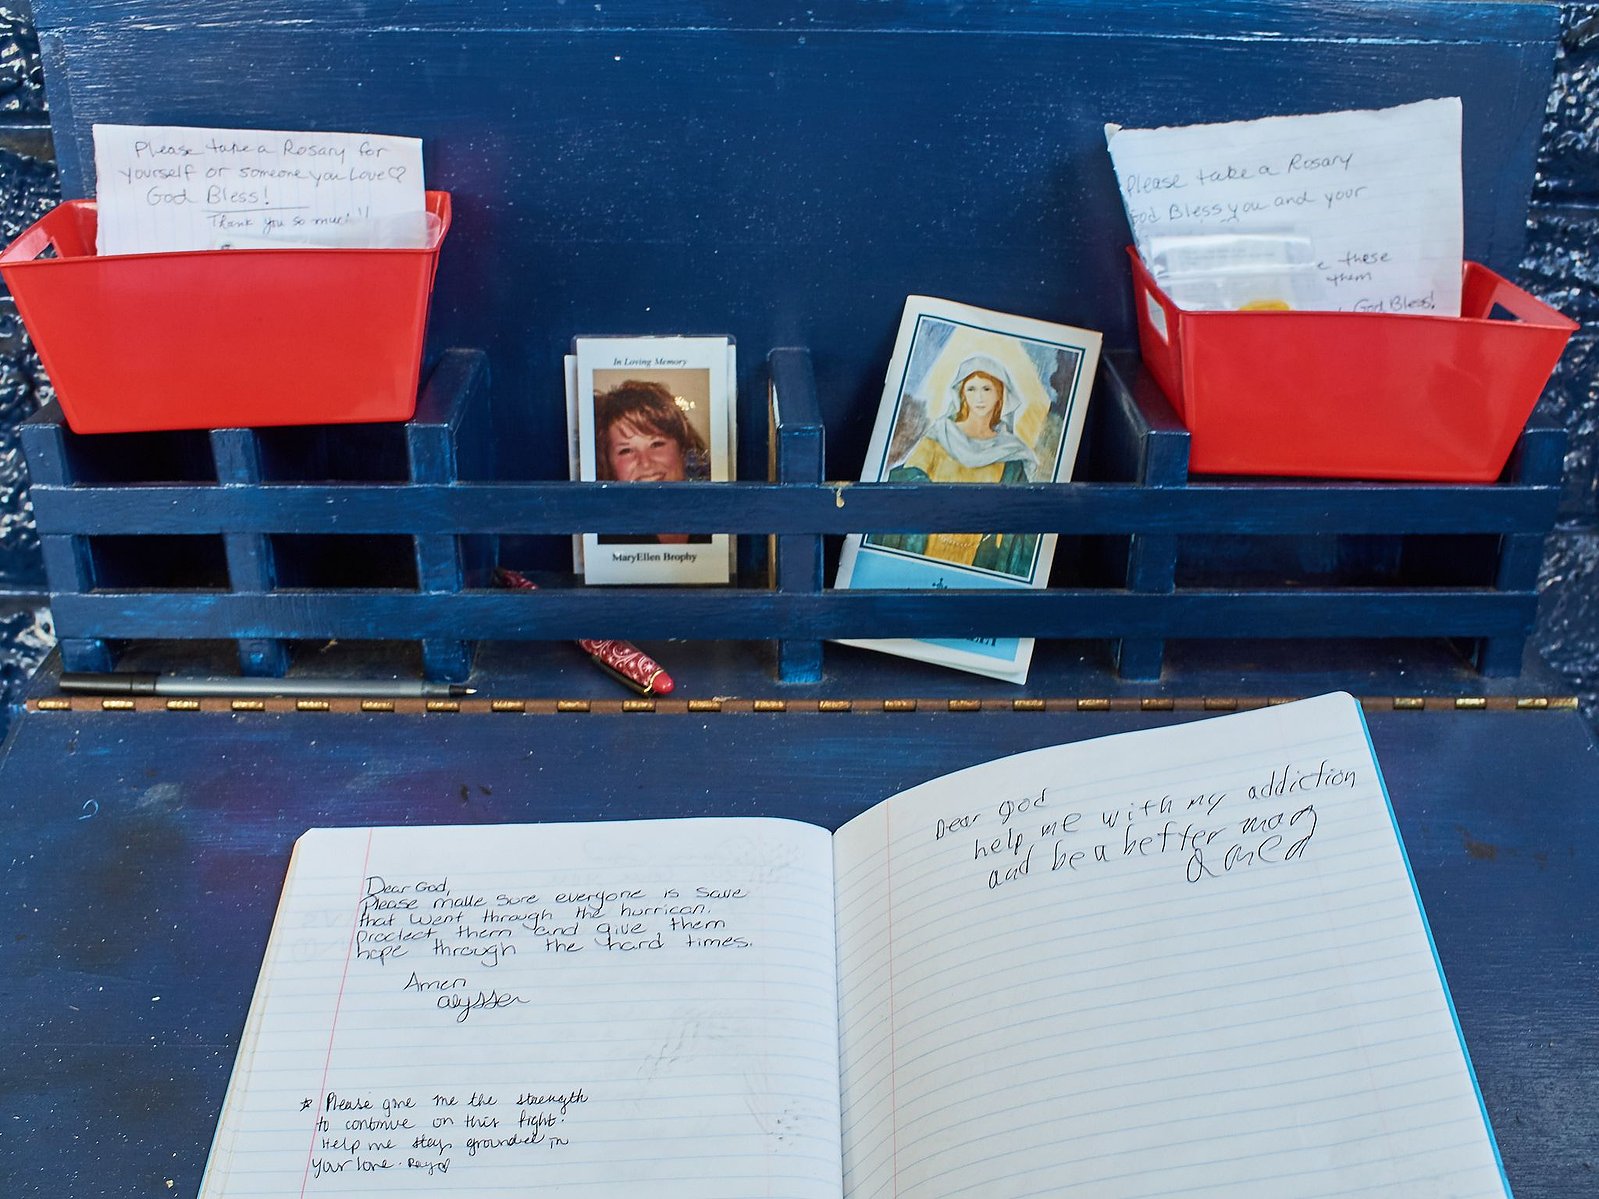 Please take a Rosary for
yourself or someone you Love♡
God Bless!
Thank you so much!!
Please take a Rosary
God Bless you and your
these
them
God Bless!
In Loving Memory
MaryEllen Brophy
Dear God,
Please make sure everyone is save
that went through the hurrican.
proctect them and give them
hope through the hard times.
Amen
alyssa
Dear God
help me with my addiction
and be a better man
☆ Please give me the strength
to continue on this fight.
Help me stay grounded in
your love. Ray♡